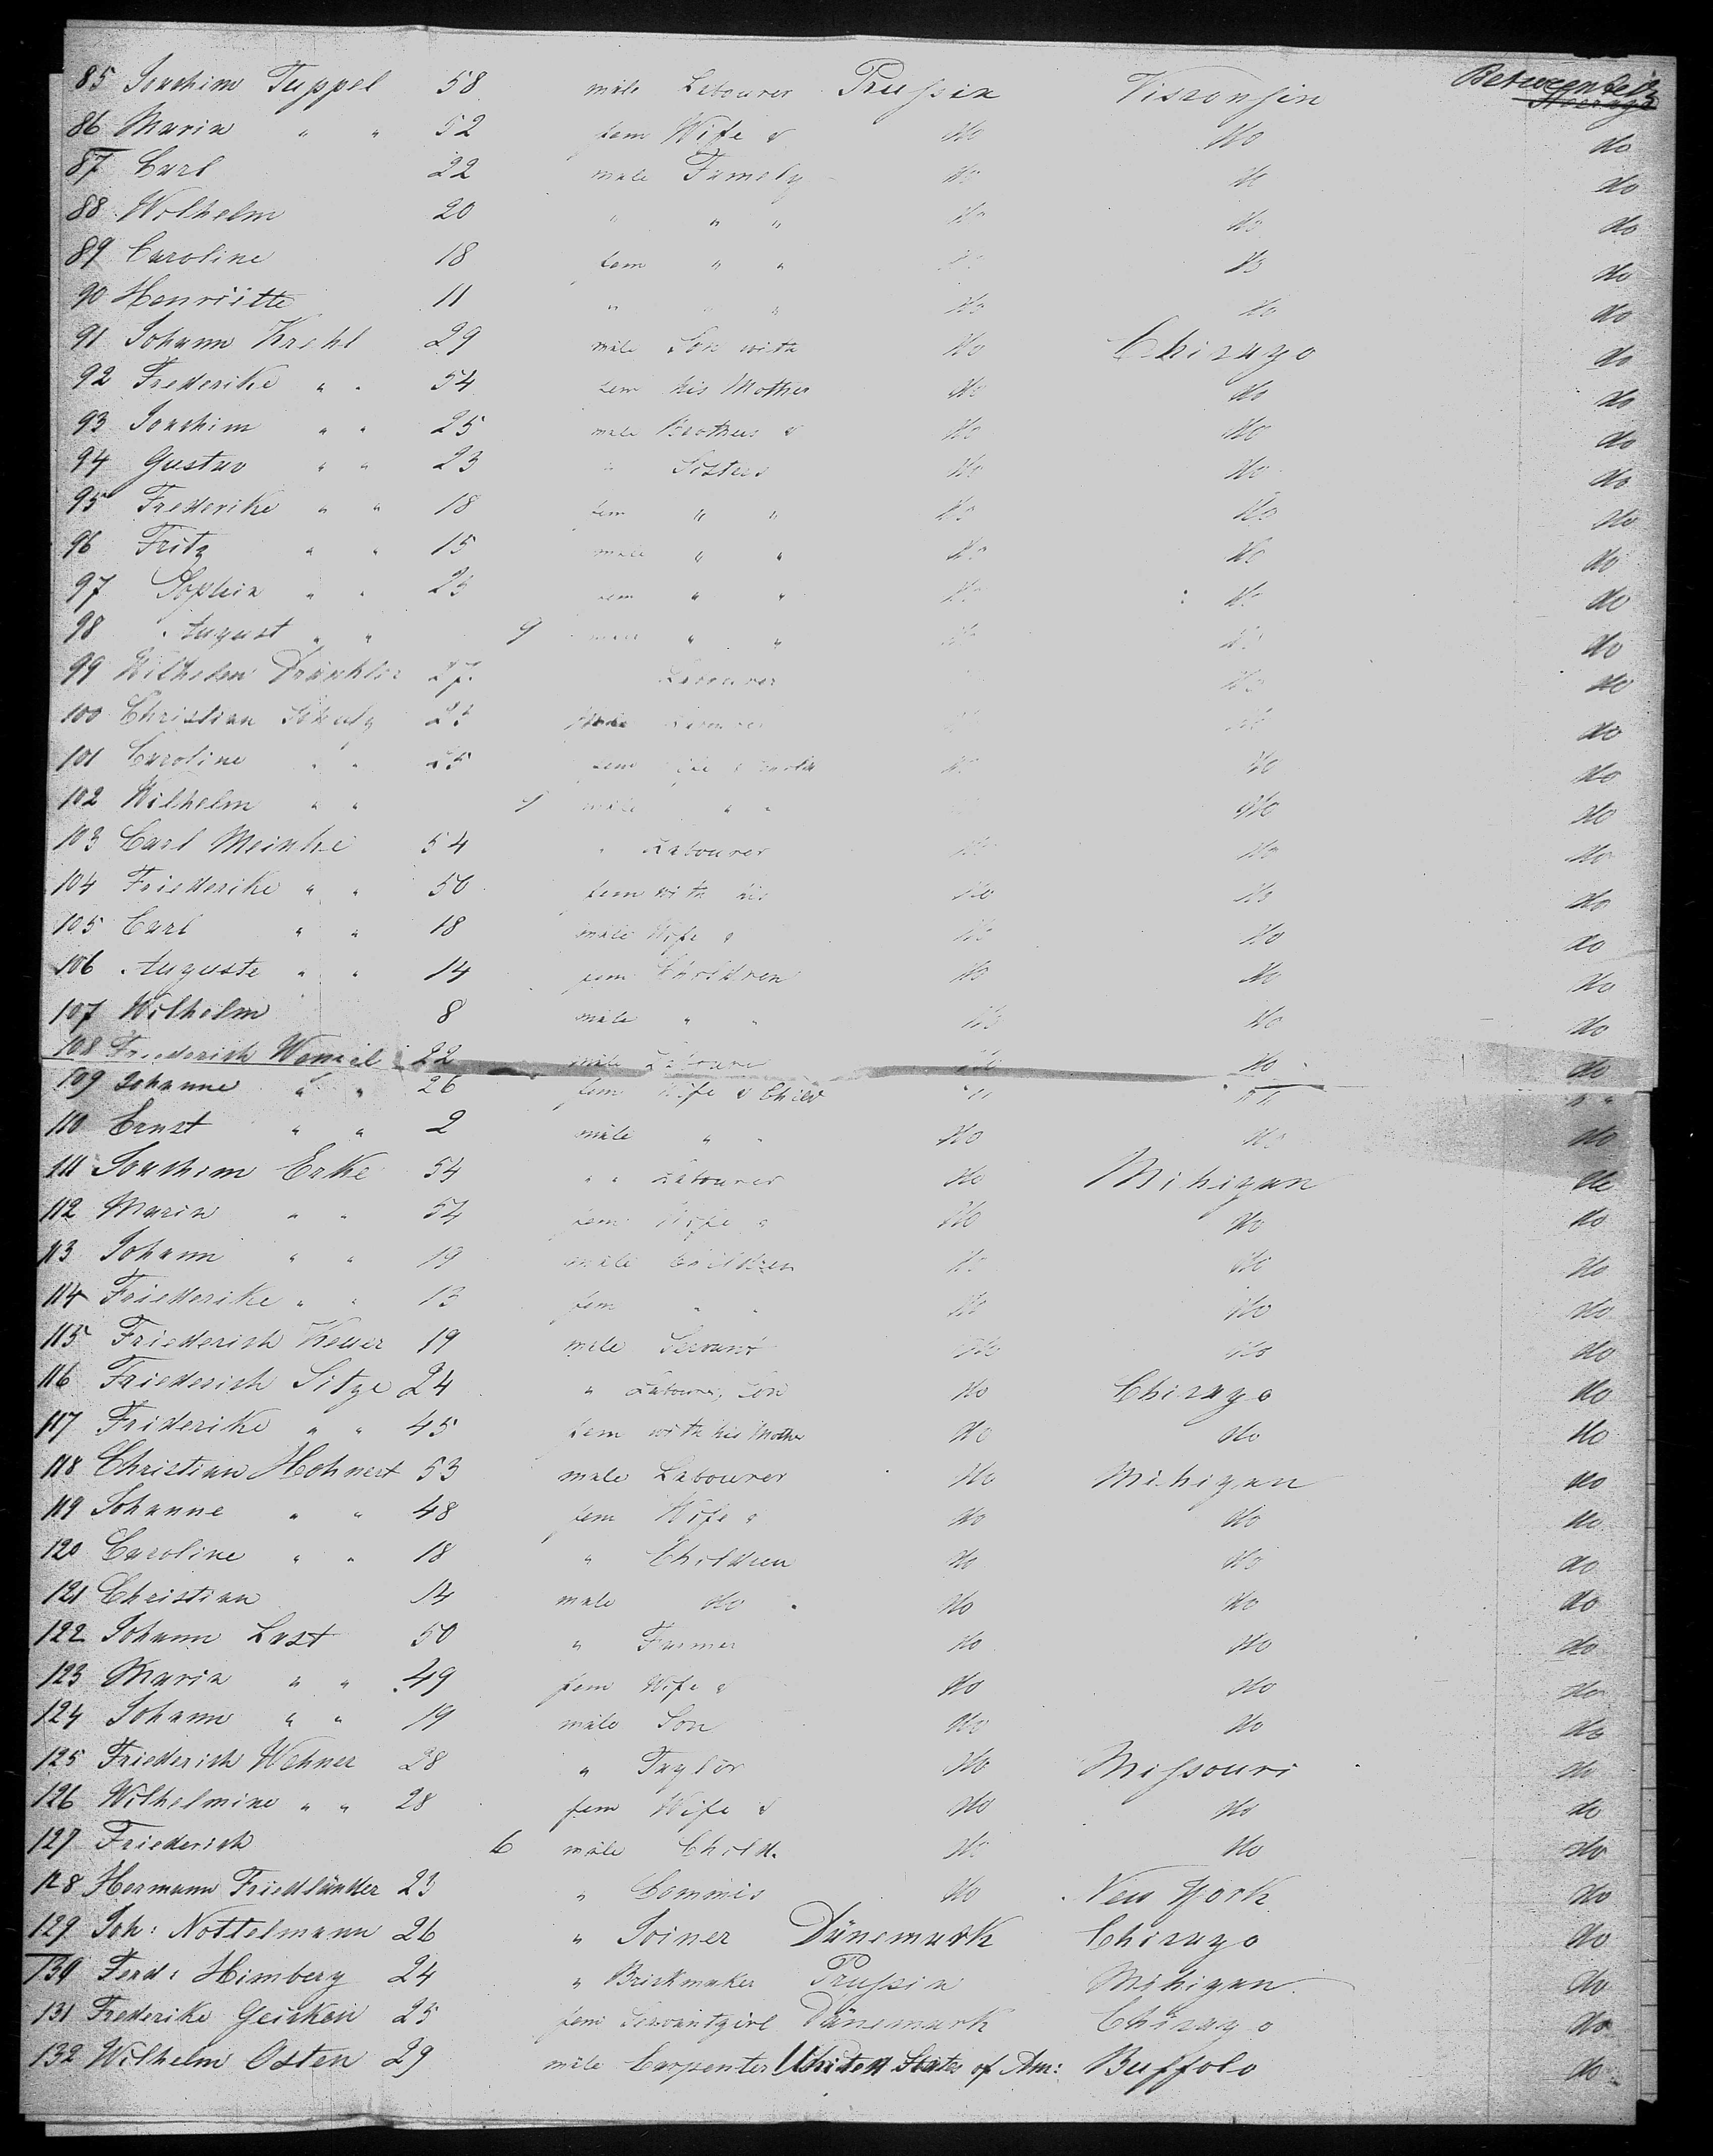 85 Joachim Tuppel 58 male Labourer Prussia Visconsin Betweendeck
86 Maria " " 52 fem Wife & do do do
87 Carl 22 male Famely do do do
88 Wilhelm 20 " " " do do do
89 Caroline 18 fem " " do do do
90 Henriitte 11 " " " do do do
91 Johann Krehl 29 male Son with do Chicago do
92 Frederike " " 54 fem his Mother do do do
93 Joachim " " 25 male Brothers & do do do
94 Gustav " " 23 " Sisters do do do
95 Frederike " " 18 fem " " do do do
96 Fritz " " 15 male " " do do do
97 Sophia " " 23 fem " " do do do
98 August " " 9 male " " do do do
99 Wilhelm 27 Labourer do do
100 Christian Schulz Labourer do do do
101 Caroline " " 25 fem do do do
102 Wilhelm " " male " " do do
103 Carl Meinke 54 " Labourer do do do
104 Friederike " " 50 fem with his do do do
105 Carl " " 18 male Wife & do do do
106 Auguste " " 14 fem Children do do do
107 Wilhelm 8 male " " do do do
108 Friederich Wenzel 22 male Labourer do do do
109 Johanne " " 26 fem Wife & Child do do do
110 Ernst " " 2 male " " do do do
111 Joachim Erke 54 " " Labourer do Mihigan do
112 Maria " " 54 fem Wife & do do do
113 Johann " " 19 male Children do do do
114 Friederike " " 13 fem " " do do do
115 Friederich 19 male Servant do do do
116 Friederich Sitze 24 " Labourer, Son do Chicago do
117 Friderike " " 45 fem with his Mother do do do
118 Christian Hohnert 53 male Labourer do Mihigan do
119 Johanne " " 48 fem Wife & do do do
120 Caroline " " 18 " Children do do do
121 Christian 14 male do do do do
122 Johann Last 50 " Farmer do do do
123 Maria " " 49 fem Wife & do do do
124 Johann " " 19 male Son do do do
125 Friederich Wehner 28 " Taylor do Missouri do
126 Wilhelmine " " 28 fem Wife & do do do
127 Friederich 6 male Child. do do do
128 Hermann Friedländer 23 " Commis do New York do
129 Joh: Nottelmann 26 " Joiner Dänemark Chicago do
130 Ferd: Himberg 24 " Brickmaker Prussia Mihigan do
131 Frederike 25 fem Servantgirl Dänemark Chicago do
132 Wilhelm Osten 29 male Carpenter United States of Am: Buffolo do